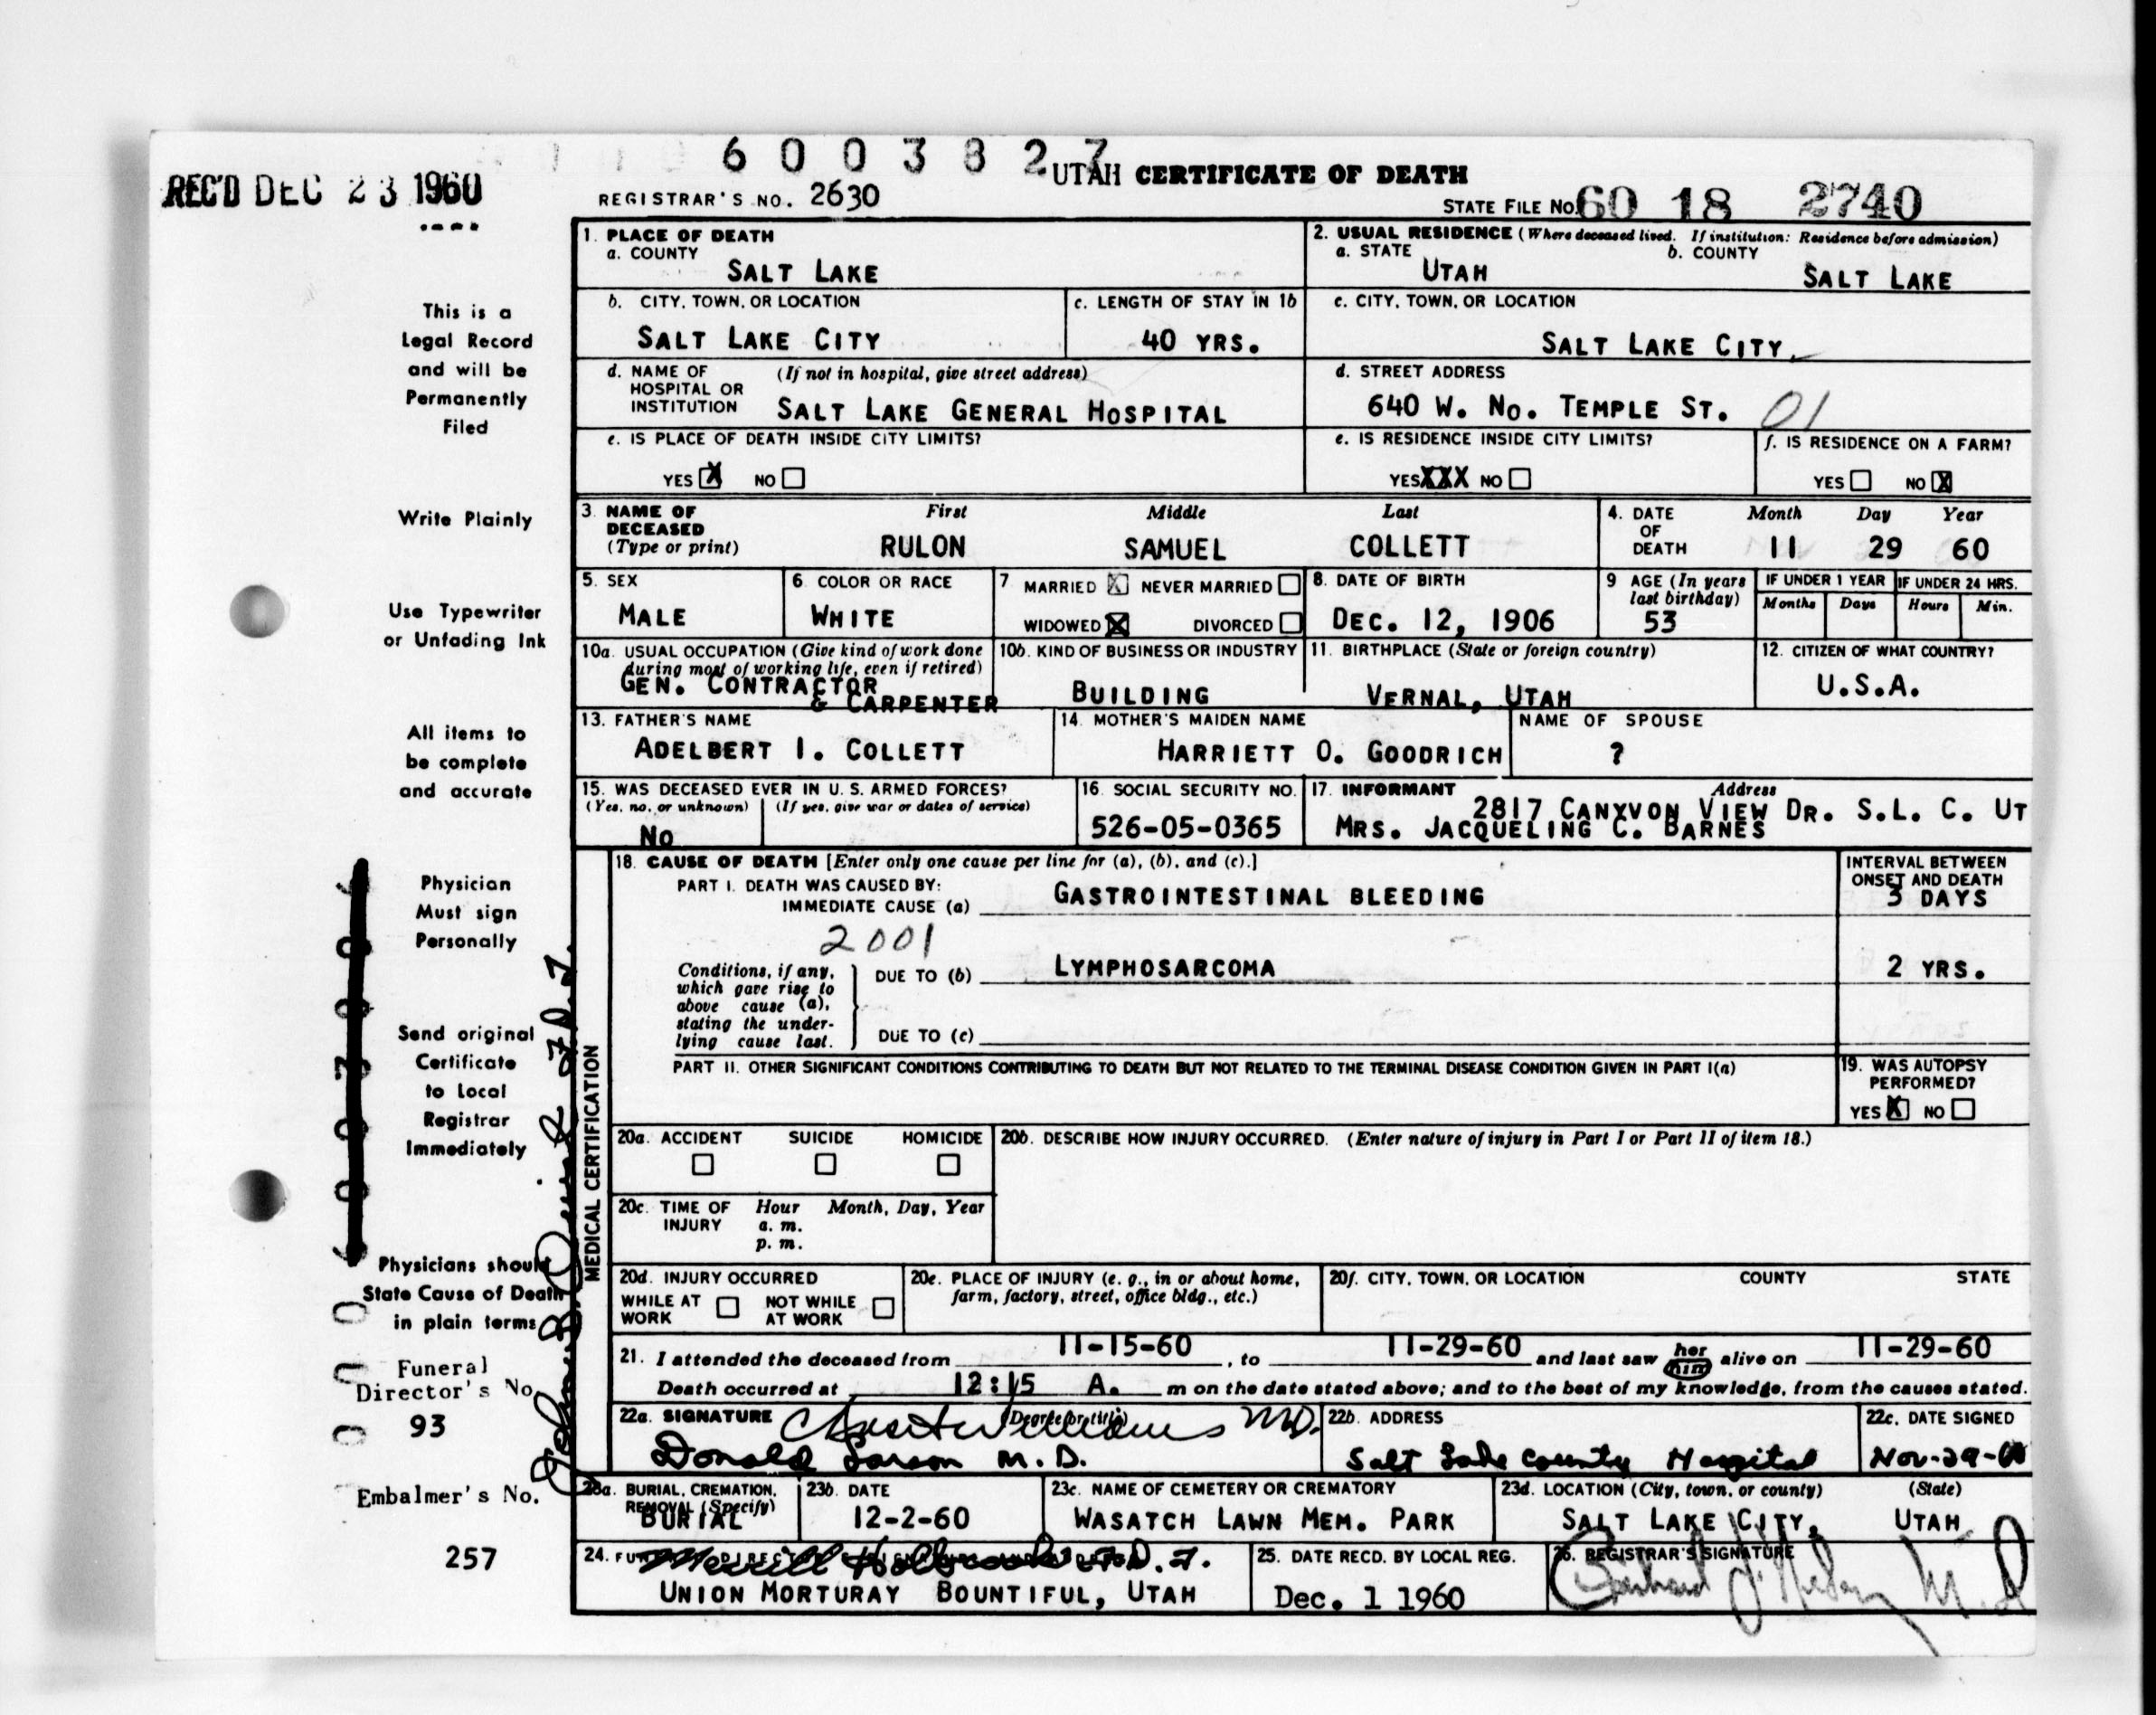 6003827
REC'D DEC 23 1960
UTAH CERTIFICATE OF DEATH
REGISTRAR'S NO. 2630
STATE FILE NO. 60 18 2740
This is a
Legal Record
and will be
Permanently
Filed
Write Plainly
Use Typewriter
or Unfading Ink
All items to
be complete
and accurate
Physician
Must sign
Personally
Send original
Certificate
to Local
Registrar
Immediately
Physicians should
State Cause of Death
in plain terms
Funeral
Director's No.
93
Embalmer's No.
257
1. PLACE OF DEATH
a. COUNTY
SALT LAKE
2. USUAL RESIDENCE (Where deceased lived. If institution: Residence before admission)
a. STATE b. COUNTY
UTAH SALT LAKE
b. CITY, TOWN, OR LOCATION
SALT LAKE CITY
c. LENGTH OF STAY IN 1b
40 YRS.
c. CITY, TOWN, OR LOCATION
SALT LAKE CITY
d. NAME OF (If not in hospital, give street address)
HOSPITAL OR
INSTITUTION SALT LAKE GENERAL HOSPITAL
d. STREET ADDRESS
640 W. NO. TEMPLE ST. 01
e. IS PLACE OF DEATH INSIDE CITY LIMITS?
YES X NO
e. IS RESIDENCE INSIDE CITY LIMITS?
YES XXX NO
f. IS RESIDENCE ON A FARM?
YES NO X
3. NAME OF First Middle Last
DECEASED
(Type or print) RULON SAMUEL COLLETT
4. DATE Month Day Year
OF
DEATH 11 29 60
5. SEX
MALE
6. COLOR OR RACE
WHITE
7 MARRIED X NEVER MARRIED
WIDOWED X DIVORCED
8. DATE OF BIRTH
DEC. 12, 1906
9 AGE (In years
last birthday)
53
IF UNDER 1 YEAR IF UNDER 24 HRS.
Months Days Hours Min.
10a. USUAL OCCUPATION (Give kind of work done
during most of working life, even if retired)
GEN. CONTRACTOR
& CARPENTER
10b. KIND OF BUSINESS OR INDUSTRY
BUILDING
11. BIRTHPLACE (State or foreign country)
VERNAL, UTAH
12. CITIZEN OF WHAT COUNTRY?
U.S.A.
13. FATHER'S NAME
ADELBERT I. COLLETT
14. MOTHER'S MAIDEN NAME
HARRIETT O. GOODRICH
NAME OF SPOUSE
?
15. WAS DECEASED EVER IN U. S. ARMED FORCES?
(Yes, no, or unknown) (If yes, give war or dates of service)
NO
16. SOCIAL SECURITY NO.
526-05-0365
17. INFORMANT Address
2817 CANYVON VIEW DR. S.L. C. UT
MRS. JACQUELING C. BARNES
MEDICAL CERTIFICATION
18. CAUSE OF DEATH [Enter only one cause per line for (a), (b), and (c).]
PART I. DEATH WAS CAUSED BY:
IMMEDIATE CAUSE (a) GASTROINTESTINAL BLEEDING
INTERVAL BETWEEN
ONSET AND DEATH
3 DAYS
2001
Conditions, if any,
which gave rise to
above cause (a),
stating the under-
lying cause last.
DUE TO (b) LYMPHOSARCOMA
2 YRS.
DUE TO (c)
PART II. OTHER SIGNIFICANT CONDITIONS CONTRIBUTING TO DEATH BUT NOT RELATED TO THE TERMINAL DISEASE CONDITION GIVEN IN PART I(a)
19. WAS AUTOPSY
PERFORMED?
YES X NO
20a. ACCIDENT SUICIDE HOMICIDE
20b. DESCRIBE HOW INJURY OCCURRED. (Enter nature of injury in Part I or Part II of item 18.)
20c. TIME OF Hour Month, Day, Year
INJURY a. m.
p. m.
20d. INJURY OCCURRED
WHILE AT NOT WHILE
WORK AT WORK
20e. PLACE OF INJURY (e. g., in or about home,
farm, factory, street, office bldg., etc.)
20f. CITY, TOWN, OR LOCATION COUNTY STATE
21. I attended the deceased from 11-15-60, to 11-29-60 and last saw her him alive on 11-29-60
Death occurred at 12:15 A. m on the date stated above; and to the best of my knowledge, from the causes stated.
22a. SIGNATURE (Degree or title)
Williams M.D.
Donald Larson M.D.
22b. ADDRESS
Salt Lake County Hospital
22c. DATE SIGNED
Nov-29-60
23a. BURIAL, CREMATION,
REMOVAL (Specify)
BURIAL
23b. DATE
12-2-60
23c. NAME OF CEMETERY OR CREMATORY
WASATCH LAWN MEM. PARK
23d. LOCATION (City, town, or county) (State)
SALT LAKE CITY, UTAH
24. Merrill Holbrook
UNION MORTURAY BOUNTIFUL, UTAH
25. DATE RECD. BY LOCAL REG.
Dec. 1 1960
26. REGISTRAR'S SIGNATURE